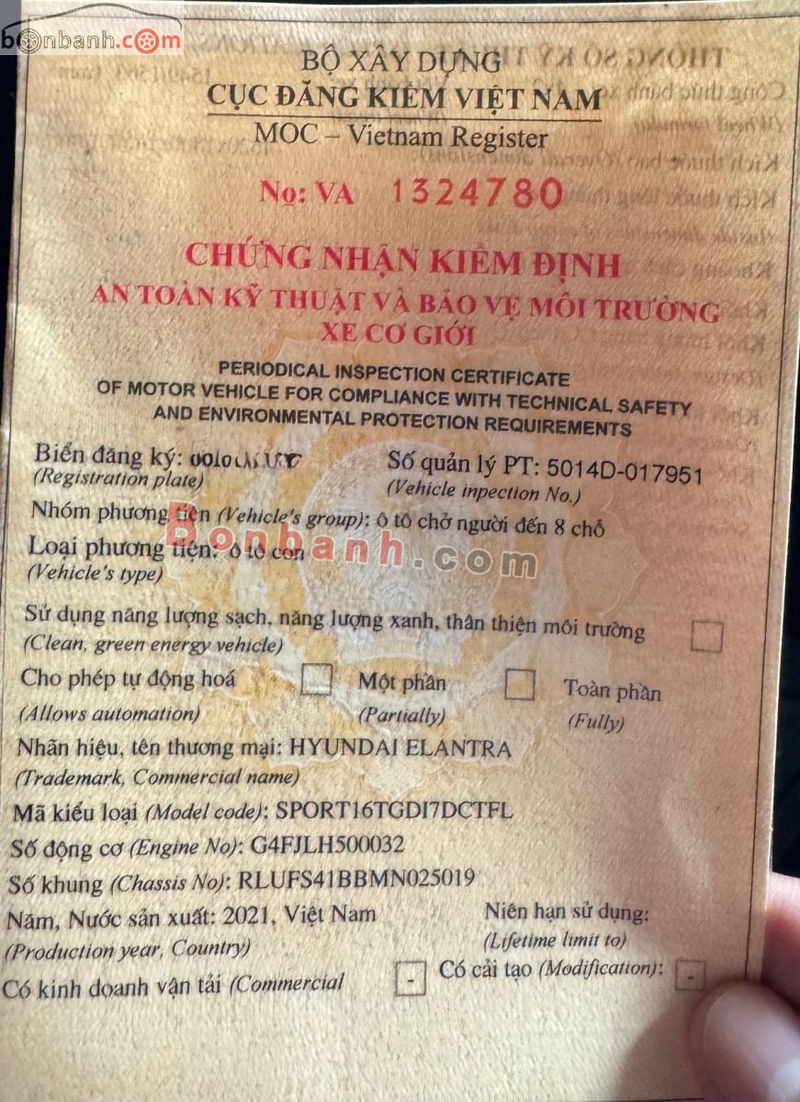 bonbanh.com
BỘ XÂY DỰNG
CỤC ĐĂNG KIỂM VIỆT NAM
MOC – Vietnam Register
No: VA 1324780
CHỨNG NHẬN KIỂM ĐỊNH
AN TOÀN KỸ THUẬT VÀ BẢO VỆ MÔI TRƯỜNG
XE CƠ GIỚI
PERIODICAL INSPECTION CERTIFICATE
OF MOTOR VEHICLE FOR COMPLIANCE WITH TECHNICAL SAFETY
AND ENVIRONMENTAL PROTECTION REQUIREMENTS
Biển đăng ký: Số quản lý PT: 5014D-017951
(Registration plate) (Vehicle inpection No.)
Nhóm phương tiện (Vehicle's group): ô tô chở người đến 8 chỗ
Bonbanh.com
Loại phương tiện: ô tô con
(Vehicle's type)
Sử dụng năng lượng sạch, năng lượng xanh, thân thiện môi trường
(Clean, green energy vehicle)
Cho phép tự động hoá Một phần Toàn phần
(Allows automation) (Partially) (Fully)
Nhãn hiệu, tên thương mại: HYUNDAI ELANTRA
(Trademark, Commercial name)
Mã kiểu loại (Model code): SPORT16TGDI7DCTFL
Số động cơ (Engine No): G4FJLH500032
Số khung (Chassis No): RLUFS41BBMN025019
Năm, Nước sản xuất: 2021, Việt Nam Niên hạn sử dụng:
(Production year, Country) (Lifetime limit to)
Có kinh doanh vận tải (Commercial - Có cải tạo (Modification): -